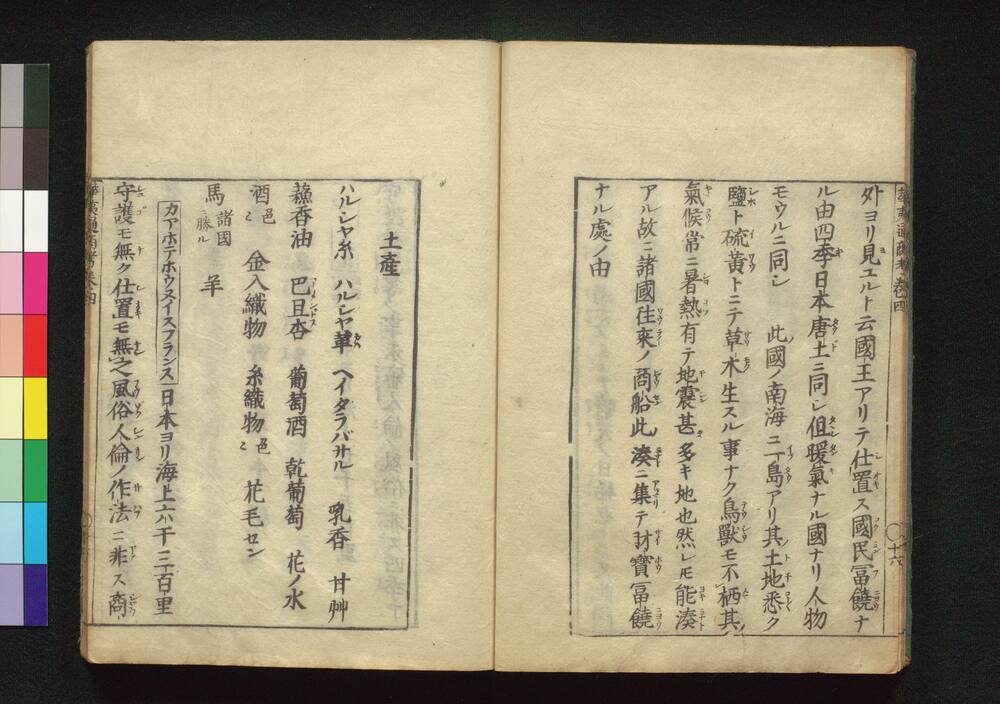 華夷通商考巻四
十六
外ヨリ見ユルト云國王アリテ仕置ス國民冨饒ナ
ル由四季日本唐土ニ同シ但暖氣ナル國ナリ人物
モウルニ同シ　此國ノ南海ニ一島アリ其土地悉ク
鹽ト硫黄トニテ草木生スル事ナク鳥獸モ不栖其
氣候常ニ暑熱有テ地震甚多キ地也然レモ能湊
アル故ニ諸國往來ノ商船此湊ニ集テ財寳冨饒
ナル處ノ由
土產
ハルシヤ糸　ハルシヤ革　ヘイタラバサル　乳香　甘艸
蘓香油　巴旦杏　葡萄酒　乾葡萄　花ノ水
酒色々　金入織物　糸織物色々　花毛セン
馬諸國ニ勝ル　羊
カアホテホウスイスフランス　日本ヨリ海上六千二百里
守護モ無ク仕置モ無之風俗人倫ノ作法ニ非ス商